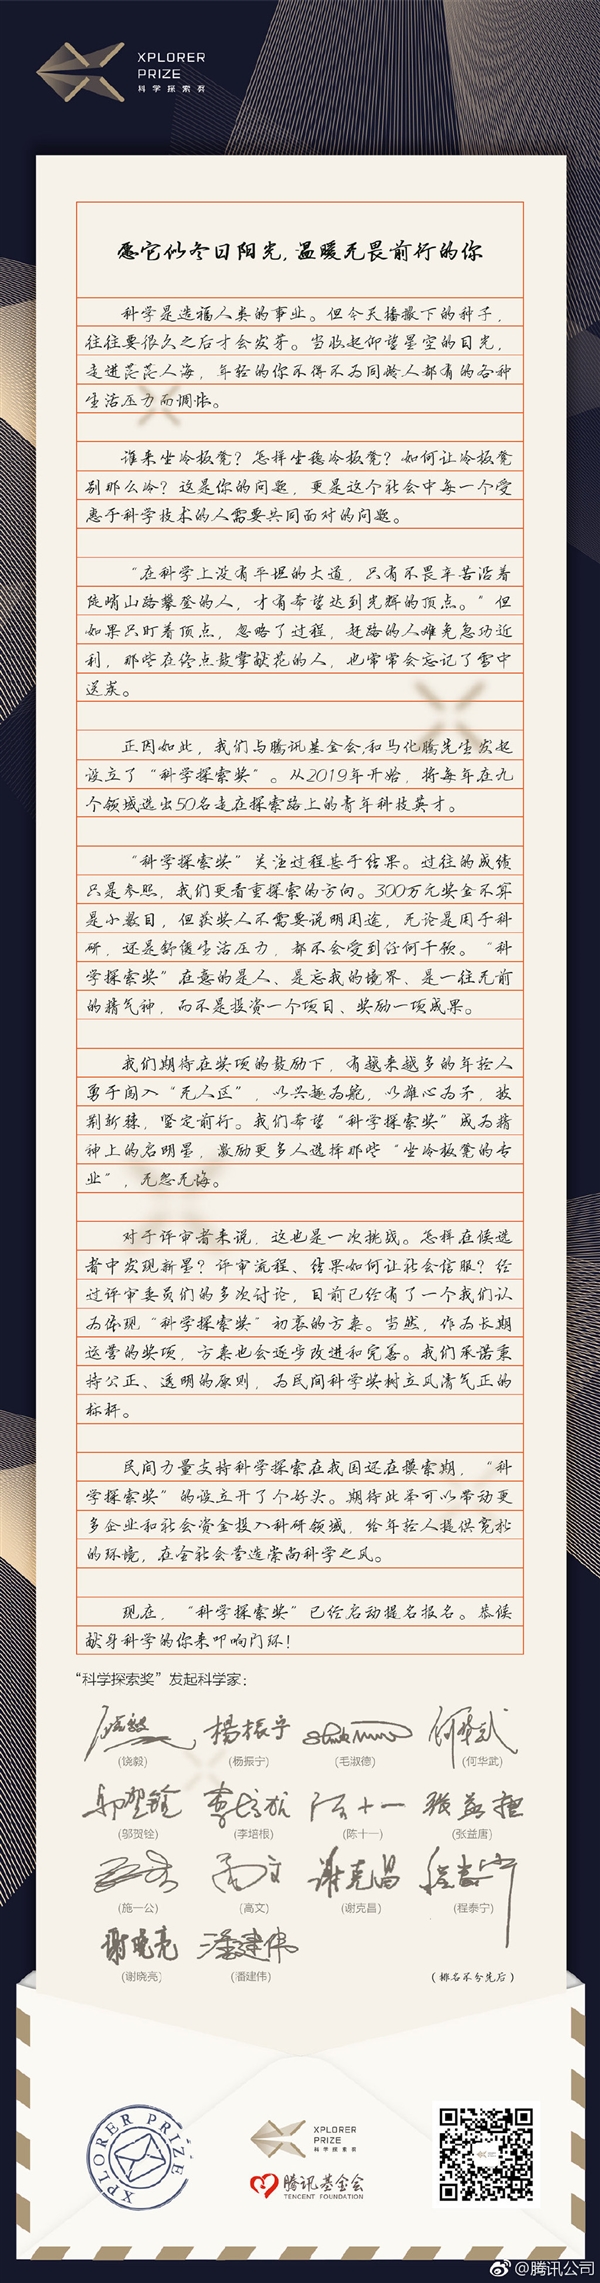 XPLORER
PRIZE
科学探索奖
愿它似冬日阳光,温暖无畏前行的你
科学是造福人类的事业。但今天播撒下的种子,
往往要很久之后才会发芽。当收起仰望星空的目光,
走进茫茫人海,年轻的你不得不为同龄人都有的各种
生活压力而惆怅。
谁来坐冷板凳?怎样坐稳冷板凳?如何让冷板凳
别那么冷?这是你的问题,更是这个社会中每一个受
惠于科学技术的人需要共同面对的问题。
“在科学上没有平坦的大道,只有不畏辛苦沿着
陡峭山路攀登的人,才有希望达到光辉的顶点。”但
如果只盯着顶点,忽略了过程,赶路的人难免急功近
利,那些在终点鼓掌献花的人,也常常会忘记了雪中
送炭。
正因如此,我们与腾讯基金会,和马化腾先生发起
设立了“科学探索奖”。从2019年开始,将每年在九
个领域选出50名走在探索路上的青年科技英才。
“科学探索奖”关注过程甚于结果。过往的成绩
只是参照,我们更看重探索的方向。300万元奖金不算
是小数目,但获奖人不需要说明用途,无论是用于科
研,还是舒缓生活压力,都不会受到任何干预。“科
学探索奖”在意的是人、是忘我的境界、是一往无前
的精气神,而不是投资一个项目、奖励一项成果。
我们期待在奖项的鼓励下,有越来越多的年轻人
勇于闯入“无人区”,以兴趣为舵,以雄心为矛,披
荆斩棘,坚定前行。我们希望“科学探索奖”成为精
神上的启明星,激励更多人选择那些“坐冷板凳的专
业”,无怨无悔。
对于评审者来说,这也是一次挑战。怎样在候选
者中发现新星?评审流程、结果如何让社会信服?经
过评审委员们的多次讨论,目前已经有了一个我们认
为体现“科学探索奖”初衷的方案。当然,作为长期
运营的奖项,方案也会逐步改进和完善。我们承诺秉
持公正、透明的原则,为民间科学奖树立风清气正的
标杆。
民间力量支持科学探索在我国还在摸索期,“科
学探索奖”的设立开了个好头。期待此举可以带动更
多企业和社会资金投入科研领域,给年轻人提供宽松
的环境,在全社会营造崇尚科学之风。
现在,“科学探索奖”已经启动提名报名。恭候
献身科学的你来叩响门环!
“科学探索奖”发起科学家:
饶毅 杨振宁 何华武
(饶毅) (杨振宁) (毛淑德) (何华武)
邬贺铨 李培根 陈十一 张益唐
(邬贺铨) (李培根) (陈十一) (张益唐)
高文 谢克昌 程泰宁
(施一公) (高文) (谢克昌) (程泰宁)
谢晓亮 潘建伟
(谢晓亮) (潘建伟) (排名不分先后)
XPLORER PRIZE
XPLORER
PRIZE
科学探索奖
腾讯基金会
TENCENT FOUNDATION
@腾讯公司